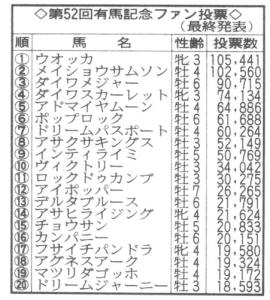 ◇第52回有馬記念ファン投票◇
(最終発表)
順 馬名 性齢 投票数
① ウオッカ 牝3 105,441
② メイショウサムソン 牡4 102,560
③ ダイワメジャー 牡6 90,715
④ ダイワスカーレット 牝3 74,134
⑤ アドマイヤムーン 牡4 64,886
⑥ ポップロック 牡6 61,688
⑦ ドリームパスポート 牡4 60,264
⑧ アサクサキングス 牡3 52,149
⑨ インティライミ 牡5 50,769
⑩ ヴィクトリー 牡3
⑪ ロックドゥカンブ 牡3
⑫ アイポッパー 牡7 26,265
⑬ デルタブルース 牡6 21,791
⑭ アサヒライジング 牝4 21,624
⑮ チョウサン 牡5 20,833
⑯ カンパニー 牡6 20,151
⑰ フサイチパンドラ 牝4 19,580
⑱ アグネスアーク 牡4
⑲ マツリダゴッホ 牡4 19,172
⑳ ドリームジャーニー 牡3 18,593